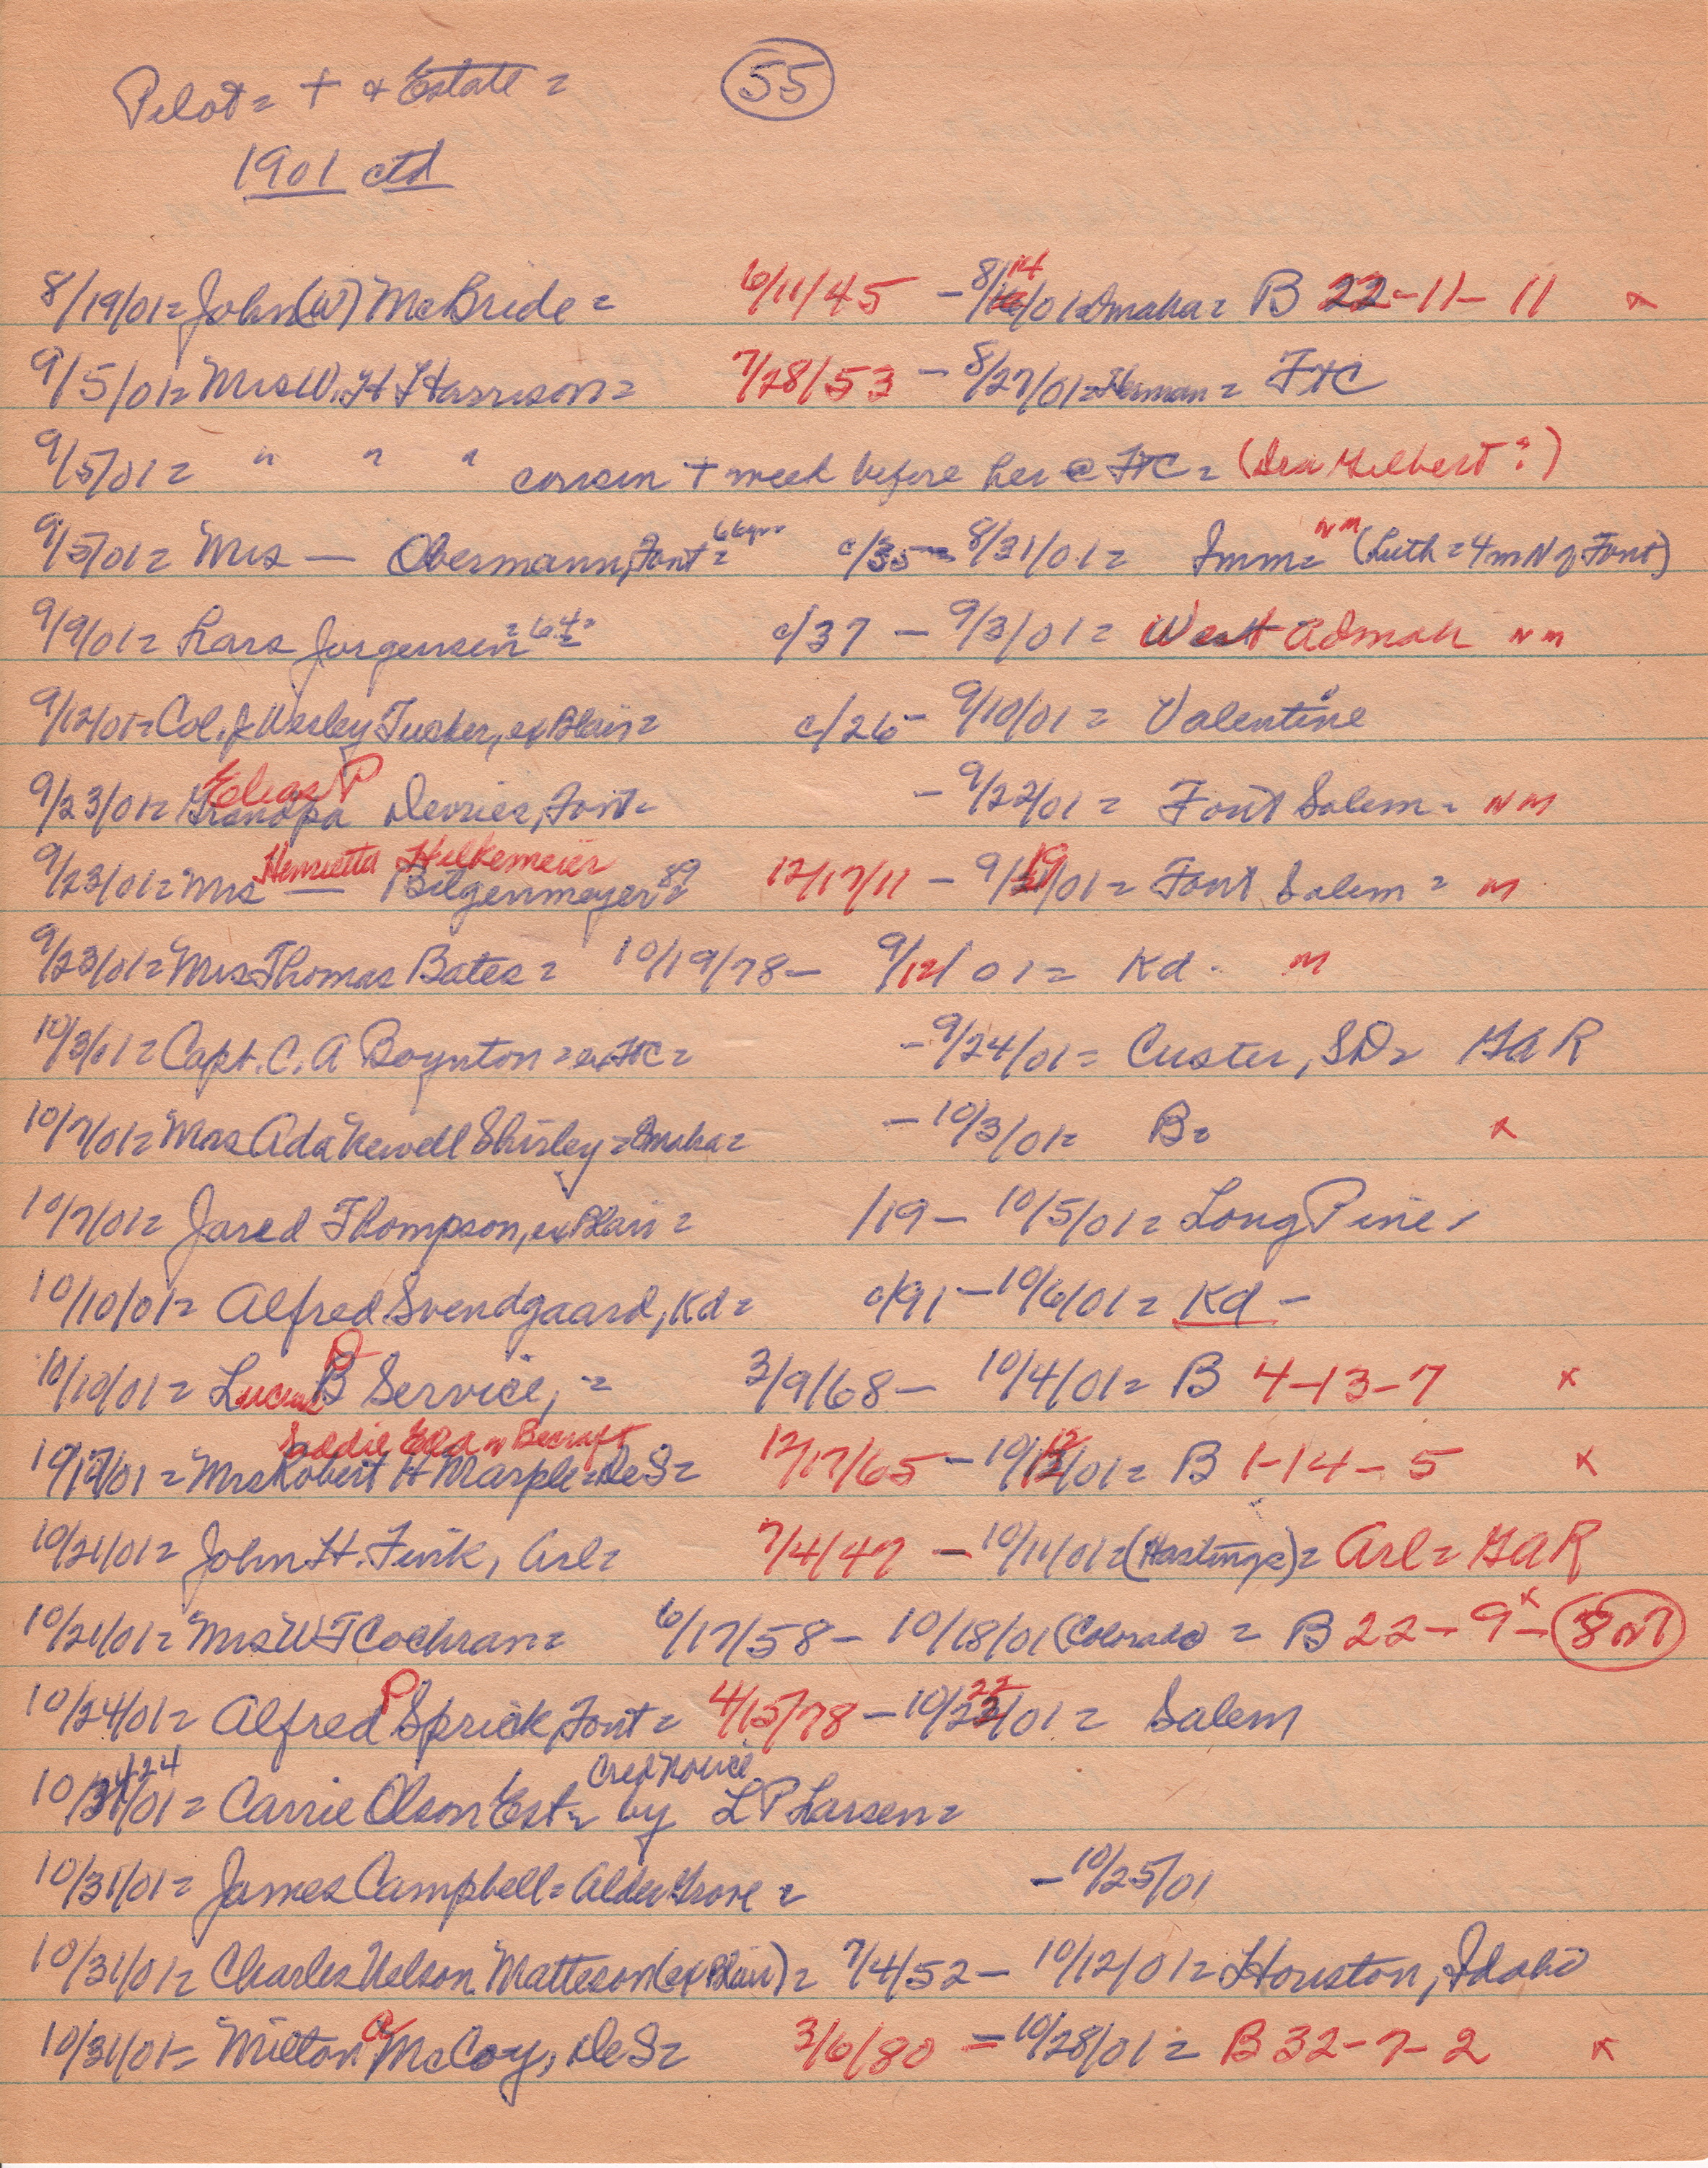 Pilot = + & Estate = 55
1901 ctd
8/19/01 = John (W) McBride = 6/11/45 - 8/14/01 = Omaha = B 22-11-11 x
9/5/01 = Mrs W. H Harrison = 7/28/53 - 8/27/01 = Herman = FtC
9/5/01 = " " " cousin + week before her @ FtC = (Dea Gilbert?)
9/5/01 = Mrs — Obermann, Font = 66 yrs c/35 - 8/31/01 = Imm = NM (Luth = 4 m N of Font)
9/9/01 = Lars Jorgensen = 64 = c/37 - 9/3/01 = West Admah NM
9/12/01 = Col. J Wesley Tucker, ex Blair = c/26 - 9/10/01 = Valentine
Elias P
9/23/01 = Grandpa Devries, Font = - 9/22/01 = Font Salem = NM
Henrietta Hilkemeier
9/23/01 = Mrs — Bilgenmeyer 89 = 12/17/11 - 9/19/01 = Font Salem = M
9/23/01 = Mrs Thomas Bates = 10/19/78 - 9/12/01 = Kd. M
10/3/01 = Capt. C. A Boynton = ex FtC = - 9/24/01 = Custer, SD = GAR
10/7/01 = Mrs Ada Newell Shirley = Omaha = - 10/3/01 = B = x
10/7/01 = Jared Thompson, ex Blair = /19 - 10/5/01 = Long Pine
10/10/01 = Alfred Svendgaard, Kd = c/91 - 10/6/01 = Kd -
D
10/10/01 = Lucius B Service, = 3/9/68 - 10/4/01 = B 4-13-7 x
Saddie Becraft
10/17/01 = Mrs Robert H Marple = DeS = 12/17/65 - 10/12/01 = B 1-14-5 x
10/21/01 = John H. Fink, Arl = 7/4/47 - 10/11/01 = (Hastings) = Arl = GAR
10/21/01 = Mrs W T Cochran = 6/17/58 - 10/18/01 (Colorado = B 22-9-8 or 7 x
10/24/01 = Alfred P Sprick, Font = 4/15/78 - 10/22/01 = Salem
& 24 Cred Notice
10/31/01 = Carrie Olson Est = by L P Larsen =
10/31/01 = James Campbell = Alder Grove = - 10/25/01
10/31/01 = Charles Nelson Matteson (ex Blair) = 7/4/52 - 10/12/01 = Houston, Idaho
10/31/01 = Milton A McCoy, DeS = 3/6/80 - 10/28/01 = B 32-7-2 x